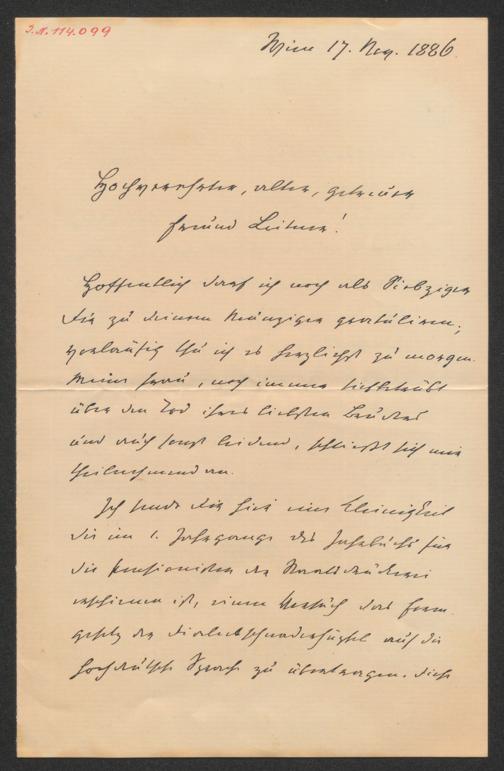 I.N. 114.099
Wien 17. Nov. 1886.
Hochverehrter, alter, getreuer
Freund Leitner!
Hoffentlich darf ich noch als Siebziger
Dir zu deinem Neunziger gratuliren;
vorläufig thu ich es herzlichst zu morgen.
Meine Frau, noch immer tiefbetrübt
über den Tod ihres liebsten Bruders
und auch sonst leidend, schließt sich mir
theilnehmend an.
Ich sende dir hier eine Kleinigkeit
die im 1. Jahrgange des Jahrbuchs für
die Pensionisten der Staatsdruckerei
erschienen ist, einen Versuch das Form-
gesetz der Dialectschnaderhüpfel auf die
hochdeutsche Sprache zu übertragen. Diese